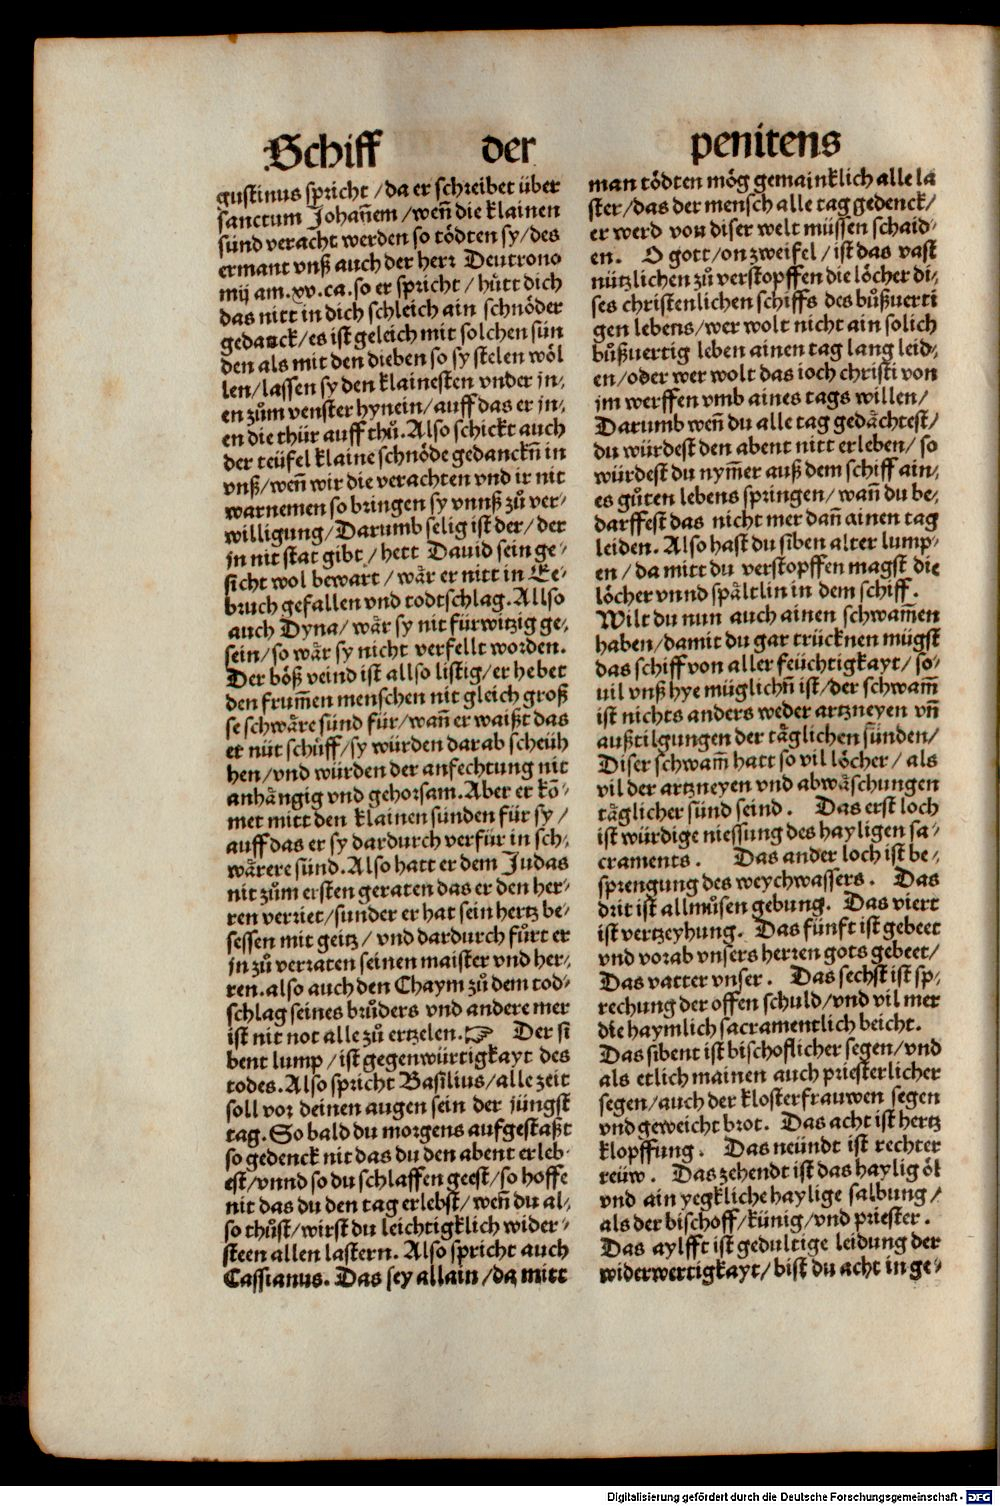 Schiff der penitens
gustinus spricht /da er schreibet über
sanctum Johañem /weñ die klainen
sünd veracht werden so tödten sy/des
ermant vnß auch der herr Deutrono
mij am.xv.ca.so er spricht /hütt dich
das nitt in dich schleich ain schnöder
gedanck/es ist geleich mit solchen sün
den als mit den dieben so sy stelen wöl
len/lassen sy den klainesten vnder jn⸗
en zům venster hynein/auff das er jn⸗
en die thür auff thů.Also schickt auch
der teüfel klaine schnöde gedanckñ in
vnß/weñ wir die verachten vnd ir nit
warnemen so bringen sy vnnß zů ver⸗
willigung/Darumb selig ist der/der
jn nit stat gibt/hett Dauid sein ge⸗
sicht wol bewart/wår er nitt in Ee⸗
bruch gefallen vnd todtschlag.Allso
auch Dyna/wår sy nit fürwitzig ge⸗
sein/so wår sy nicht verfellt worden.
Der böß veind ist allso listig/er hebet
den frum̃en menschen nit gleich groß
se schwåre sünd für/wañ er waißt das
er nüt schüff/sy würden darab scheüh
hen/vnd würden der anfechtung nit
anhångig vnd gehorsam.Aber er kõ⸗
met mitt den klainen sünden für sy/
auff das er sy dardurch verfür in sch⸗
wårere sünd.Also hatt er dem Judas
nit zům ersten geraten das er den her⸗
ren verriet/sunder er hat sein hertz be⸗
sessen mit geitz/vnd dardurch fůrt er
jn zů verraten seinen maister vnd her⸗
ren.also auch den Chaym zů dem tod⸗
schlag seines brůders vnd andere mer
ist nit not alle zů ertzelen.☞ Der si
bent lump/ist gegenwürtigkayt des
todes.Also spricht Basilius/alle zeit
soll vor deinen augen sein der jüngst
tag.So bald du morgens aufgestaßt
so gedenck nit das du den abent erleb⸗
est/vnnd so du schlaffen geest/so hoffe
nit das du den tag erlebst/weñ du al⸗
so thůst/wirst du leichtigklich wider⸗
steen allen lastern.Also spricht auch
Cassianus.Das sey allain/da mitt
man tödten mög gemainklich alle la
ster/das der mensch alle tag gedenck/
er werd von diser welt müssen schaid⸗
en. O gott/on zweifel/ist das vast
nützlichen zů verstopffen die löcher di⸗
ses christenlichen schiffs des bůßuerti
gen lebens/wer wolt nicht ain solich
bůßuertig leben ainen tag lang leid⸗
en/oder wer wolt das ioch christi von
jm werffen vmb aines tags willen/
Darumb weñ du alle tag gedåchtest/
du würdest den abent nitt erleben/so
würdest du nym̃er auß dem schiff ain⸗
es gůten lebens springen/wañ du be⸗
darffest das nicht mer dañ ainen tag
leiden.Also hast du siben alter lump⸗
en/da mitt du verstopffen magst die
löcher vnnd spåltlin in dem schiff.
Wilt du nun auch ainen schwam̃en
haben/damit du gar trücknen mügst
das schiff von aller feüchtigkayt/so⸗
uil vnß hye müglichñ ist/der schwam̃
ist nichts anders weder artzneyen vñ
außtilgungen der tåglichen sünden/
Diser schwam̃ hatt so vil löcher/als
vil der artzneyen vnd abwåschungen
tåglicher sünd seind. Das erst loch
ist würdige niessung des hayligen sa⸗
craments. Das ander loch ist be⸗
sprengung des weychwassers. Das
drit ist allmůsen gebung. Das viert
ist vertzeyhung. Das fünft ist gebeet
vnd vorab vnsers herren gots gebeet/
Das vatter vnser. Das sechst ist sp⸗
rechung der offen schuld/vnd vil mer
die haymlich sacramentlich beicht.
Das sibent ist bischoflicher segen/vnd
als etlich mainen auch priesterlicher
segen/auch der klosterfrauwen segen
vnd geweicht brot. Das acht ist hertz
klopffung. Das neündt ist rechter
reüw. Das zehendt ist das haylig öl
vnd ain yegkliche haylige salbung/
als der bischoff/künig/vnd priester.
Das aylfft ist gedultige leidung der
widerwertigkayt/bist du acht in ge⸗
Digitalisierung gefördert durch die Deutsche Forschungsgemeinschaft - DFG